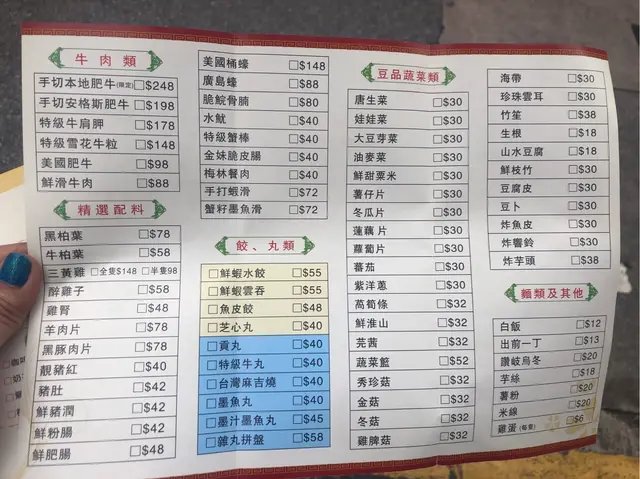 牛肉類
手切本地肥牛(限定) □$248
手切安格斯肥牛 □$198
特級牛肩胛 □$178
特級雪花牛粒 □$148
美國肥牛 □$98
鮮滑牛肉 □$88
精選配料
黑柏葉 □$78
牛柏葉 □$58
三黃雞 □全隻$148 □半隻98
醉雞子 □$58
雞腎 □$48
羊肉片 □$78
黑豚肉片 □$78
靚豬紅 □$40
豬肚 □$42
鮮豬潤 □$42
鮮粉腸 □$42
鮮肥腸 □$48
美國桶蠔 □$148
廣島蠔 □$88
脆鯇骨腩 □$80
水魷 □$40
特級蟹棒 □$40
金妹脆皮腸 □$40
梅林餐肉 □$40
手打蝦滑 □$72
蟹籽墨魚滑 □$72
餃、丸類
□鮮蝦水餃 □$55
□鮮蝦雲吞 □$55
□魚皮餃 □$48
□芝心丸 □$40
□貢丸 □$40
□特級牛丸 □$40
□台灣麻吉燒 □$40
□墨魚丸 □$40
□墨汁墨魚丸 □$45
□雜丸拼盤 □$58
豆品蔬菜類
唐生菜 □$30
娃娃菜 □$30
大豆芽菜 □$30
油麥菜 □$30
鮮甜粟米 □$30
薯仔片 □$30
冬瓜片 □$30
蓮藕片 □$30
蘿蔔片 □$30
蕃茄 □$30
紫洋蔥 □$30
萵筍條 □$32
鮮淮山 □$32
芫茜 □$32
蔬菜籃 □$52
秀珍菇 □$32
金菇 □$32
冬菇 □$32
雞脾菇 □$32
海帶 □$30
珍珠雲耳 □$30
竹笙 □$38
生根 □$18
山水豆腐 □$18
鮮枝竹 □$30
豆腐皮 □$30
豆卜 □$30
炸魚皮 □$30
炸響鈴 □$30
炸芋頭 □$38
麵類及其他
白飯 □$12
出前一丁 □$13
讚岐烏冬 □$20
芋絲 □$18
薯粉 □$20
米線 □$20
雞蛋(每隻) □$6